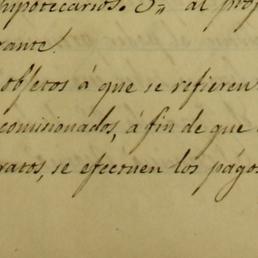 hipotecarios. 3,, al prop
rante.
objetos á que se refieren
comisionados, á fin de que
ratos, se efectuen los págos